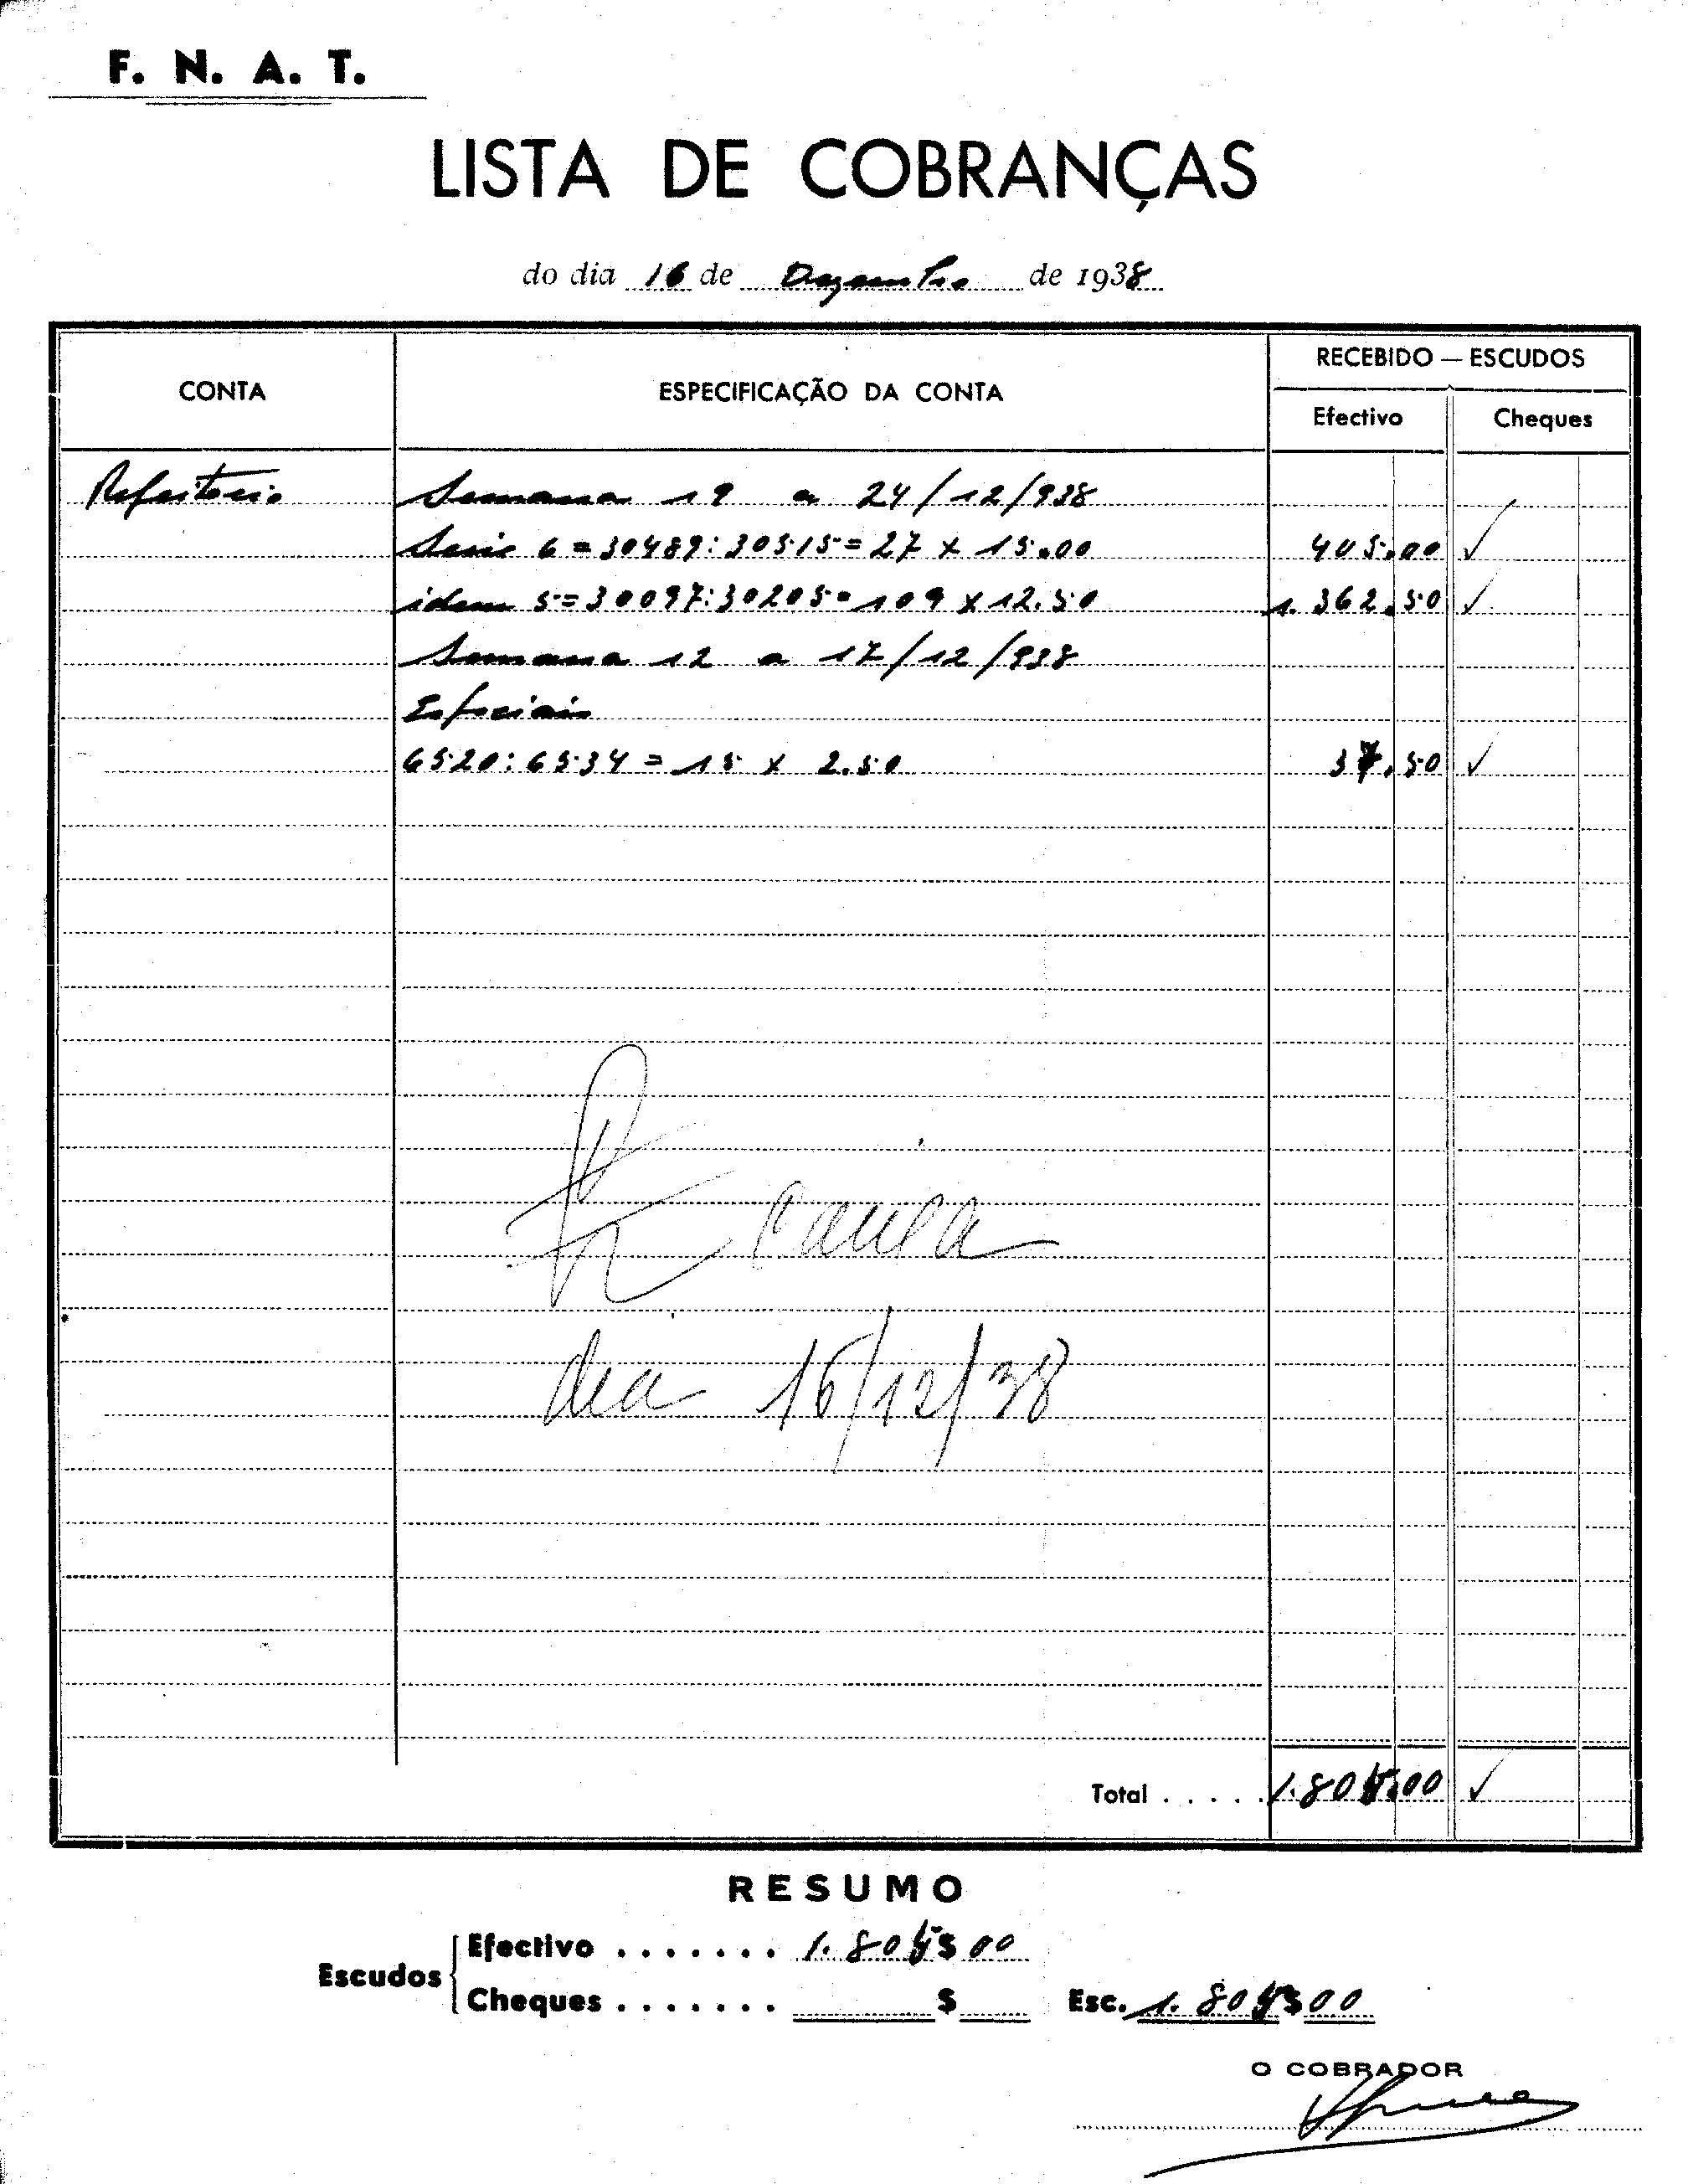 F. N. A. T.
LISTA DE COBRANÇAS
do dia 16 de Dezembro de 1938
RECEBIDO — ESCUDOS
CONTA ESPECIFICAÇÃO DA CONTA
Efectivo Cheques
Refeitorio Semana 19 a 24/12/938
Serie 6 = 30489:30515 = 27 x 15.00 405.00 ✓
idem 5 = 30097:30205 = 109 x 12.50 1.362.50 ✓
Semana 12 a 17/12/938
Especiais
6520:6534 = 15 x 2.50 37.50 ✓
caixa
dia 16/12/38
Total . . . . . 1.805.00 ✓
RESUMO
Efectivo . . . . . . . 1.805$00
Escudos
Cheques . . . . . . . $ Esc. 1.805$00
O COBRADOR